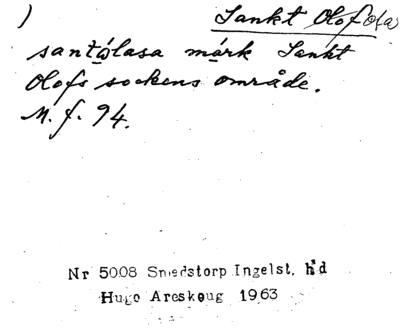 ) Sankt Olof
santålasa märk Sankt
Olofs sockens område.
M. f. 94.
Nr 5008 Smedstorp Ingelst. hd
Hugo Areskoug 1963